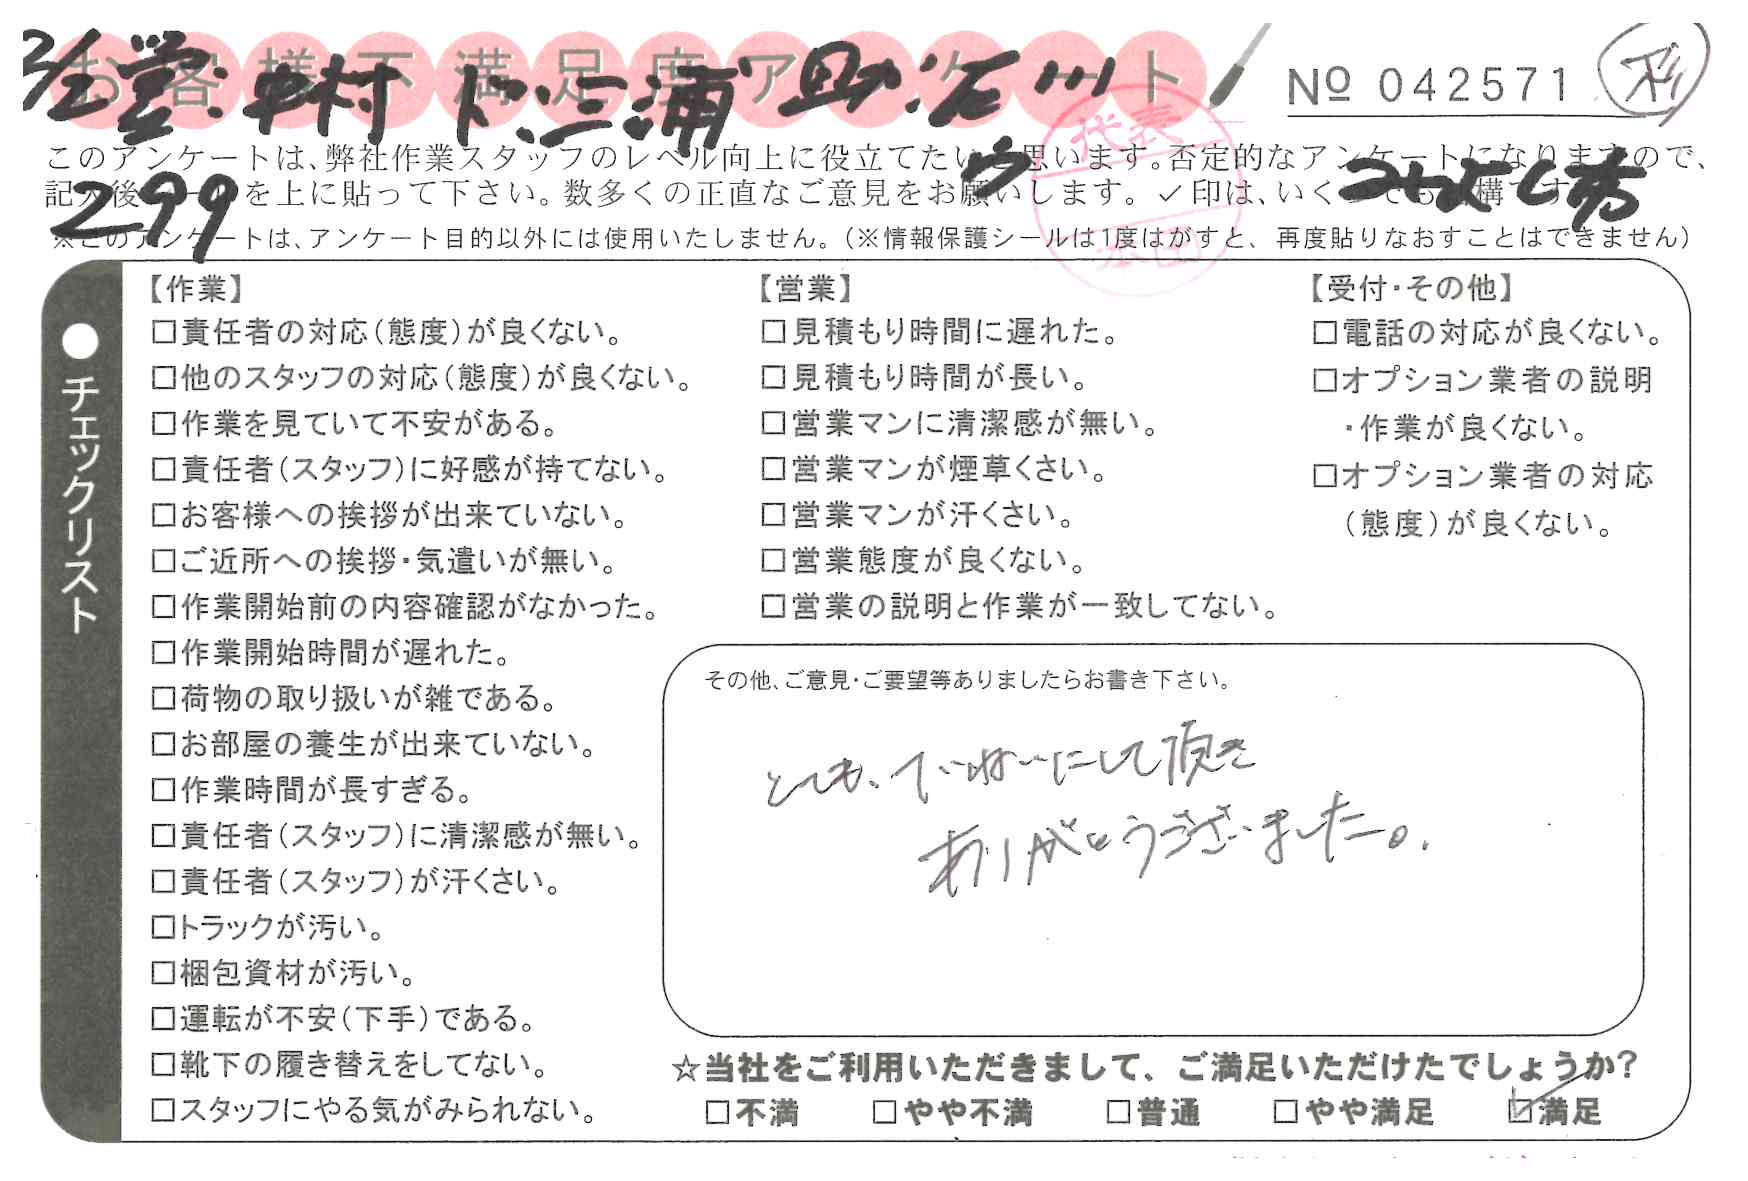 お客様不満足度アンケート
営.中村 ド.三浦 助.石川
No 042571
このアンケートは、弊社作業スタッフのレベル向上に役立てたいと思います。否定的なアンケートになりますので、
記入後シールを上に貼って下さい。数多くの正直なご意見をお願いします。✓印は、いくつでも結構です
299
※このアンケートは、アンケート目的以外には使用いたしません。(※情報保護シールは1度はがすと、再度貼りなおすことはできません)
代表
●チェックリスト
【作業】
□責任者の対応(態度)が良くない。
□他のスタッフの対応(態度)が良くない。
□作業を見ていて不安がある。
□責任者(スタッフ)に好感が持てない。
□お客様への挨拶が出来ていない。
□ご近所への挨拶・気遣いが無い。
□作業開始前の内容確認がなかった。
□作業開始時間が遅れた。
□荷物の取り扱いが雑である。
□お部屋の養生が出来ていない。
□作業時間が長すぎる。
□責任者(スタッフ)に清潔感が無い。
□責任者(スタッフ)が汗くさい。
□トラックが汚い。
□梱包資材が汚い。
□運転が不安(下手)である。
□靴下の履き替えをしてない。
□スタッフにやる気がみられない。
【営業】
□見積もり時間に遅れた。
□見積もり時間が長い。
□営業マンに清潔感が無い。
□営業マンが煙草くさい。
□営業マンが汗くさい。
□営業態度が良くない。
□営業の説明と作業が一致してない。
【受付・その他】
□電話の対応が良くない。
□オプション業者の説明
・作業が良くない。
□オプション業者の対応
(態度)が良くない。
その他、ご意見・ご要望等ありましたらお書き下さい。
とても、ていねいにして頂き
ありがとうございました。
☆当社をご利用いただきまして、ご満足いただけたでしょうか?
□不満 □やや不満 □普通 □やや満足 ☑満足